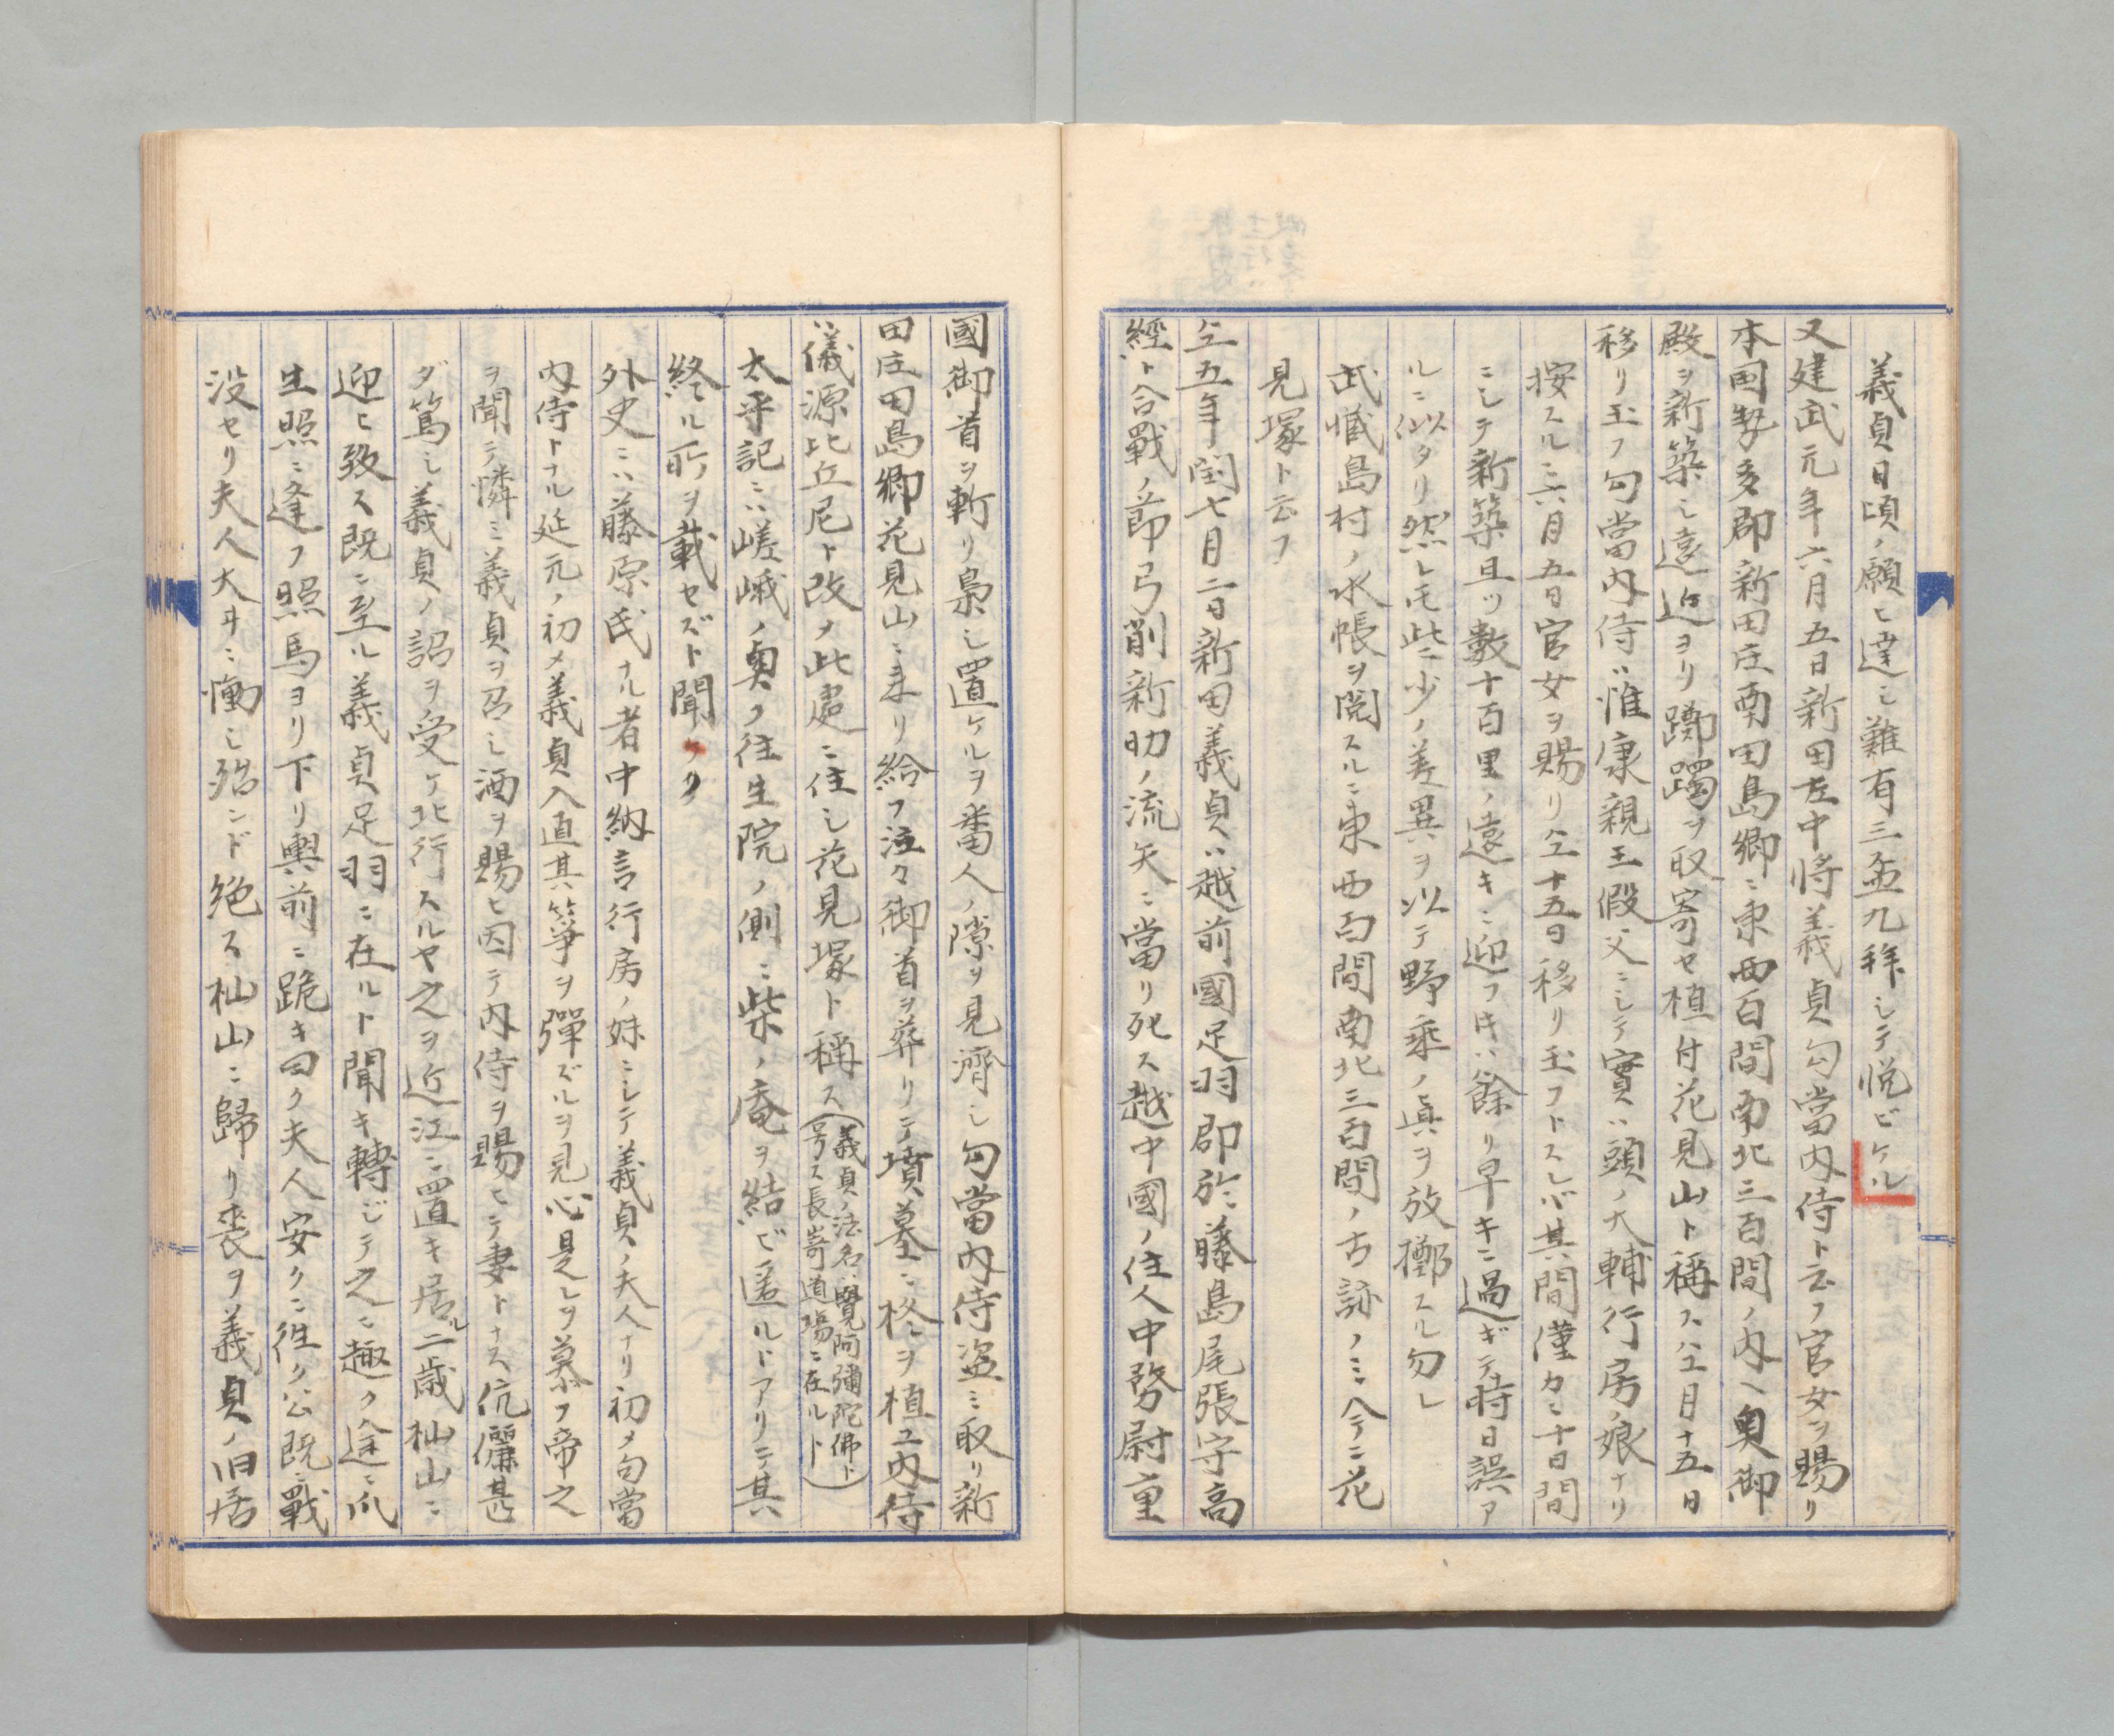 義貞日頃ノ願ヒ達シ難有三盃九拜シテ悦ビケル
又建武元年六月五日新田左中將義貞勾當内侍ト云フ官女ヲ賜リ
本国勢多郡新田庄南田島郷ニ東西百間南北三百間ノ内ヘ奥御
殿ヲ新築シ遠近ヨリ躑躅ヲ取寄セ植付花見山ト稱ス仝月十五日
移リ玉フ勾當内侍ハ惟康親王假父ニシテ實ハ頭ノ大輔行房ノ娘ナリ
按スルニ六月五日官女ヲ賜リ仝十五日移リ玉フトスレバ其間僅カニ十日間
ニシテ新築且ツ數十百里ノ遠キニ迎フ片ハ餘リ早キニ過ギテ時日誤ア
ルニ似タリ然レ𪜈此ニ少ノ差異ヲ以テ野乘ノ眞ヲ放擲スル勿レ
武懺島村ノ水帳ヲ閲スルニ東西百間南北三百間ノ古跡ノミ今ニ花
見塚ト云フ
仝五年閏七月二日新田義貞ハ越前國足羽郡於ニ藤島尾張守高
經ト合戰ノ節弓削新助ノ流矢ニ當リ死ス越中國ノ住人中務尉重
國御首ヲ斬リ梟シ置ケルヲ番人ノ隙ヲ見濟シ勾當内侍盗ミ取リ新
田庄田島郷花見山ニ来リ給フ泣々御首ヲ葬リテ墳墓ニ柊ヲ植ユ内侍
ハ儀源比丘尼ト改メ此處ニ住シ花見塚ト稱ス(義貞ノ法名ハ覺阿彌陀佛ト
号ス長嵜道場ニ在ルト)
太平記ニハ嵯峨ノ奥ク往生院ノ側ニ柴ノ庵ヲ結ビ匿ルトアリテ其
終ル所ヲ載セズト聞ク
外史ニハ藤原氏ナル者中納言行房ノ妹ニシテ義貞ノ夫人ナリ初メ勾當
内侍トナル延元ノ初メ義貞入直其箏ヲ彈ズルヲ見心是レヲ慕フ帝之
ヲ聞テ憐ミ義貞ヲ召シ酒ヲ賜ヒ因テ内侍ヲ賜ヒテ妻トナス伉儷甚
ダ篤シ義貞ノ詔ヲ受ケ北行スルヤ之ヲ近江ニ置キ居ル二歳杣山ニ
迎ヒ致ス既ニ至ル義貞足羽ニ在ルト聞キ轉ジテ之ニ趣ク途ニ爪
生照ニ逢フ照馬ヨリ下リ輿前ニ跪キ曰ク夫人安クニ往ク公既ニ戰
没セリ夫人大ヰニ慟シ殆ンド絶ス杣山ニ歸リ喪ヲ義貞ノ旧居